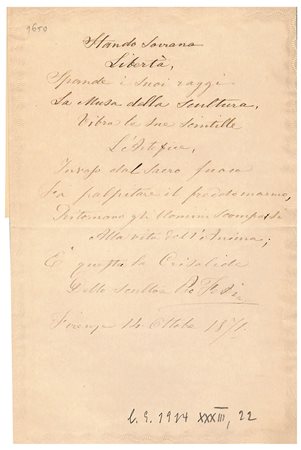 9650
Stando Sovrana
Libertà,
Spande i suoi raggi
La Musa della Scultura,
Vibra le sue scintille
L'Artefice,
Invaso dal Sacro fuoco
Fa palpitare il freddo marmo,
Ritornano gli Uomini scomparsi
Alla vita dell'Anima;
E questa la Crisalide
Dello scultore Pio Fedi
Firenze 14 Ottobre 1871.
C.S. 1914 XXXIII, 22